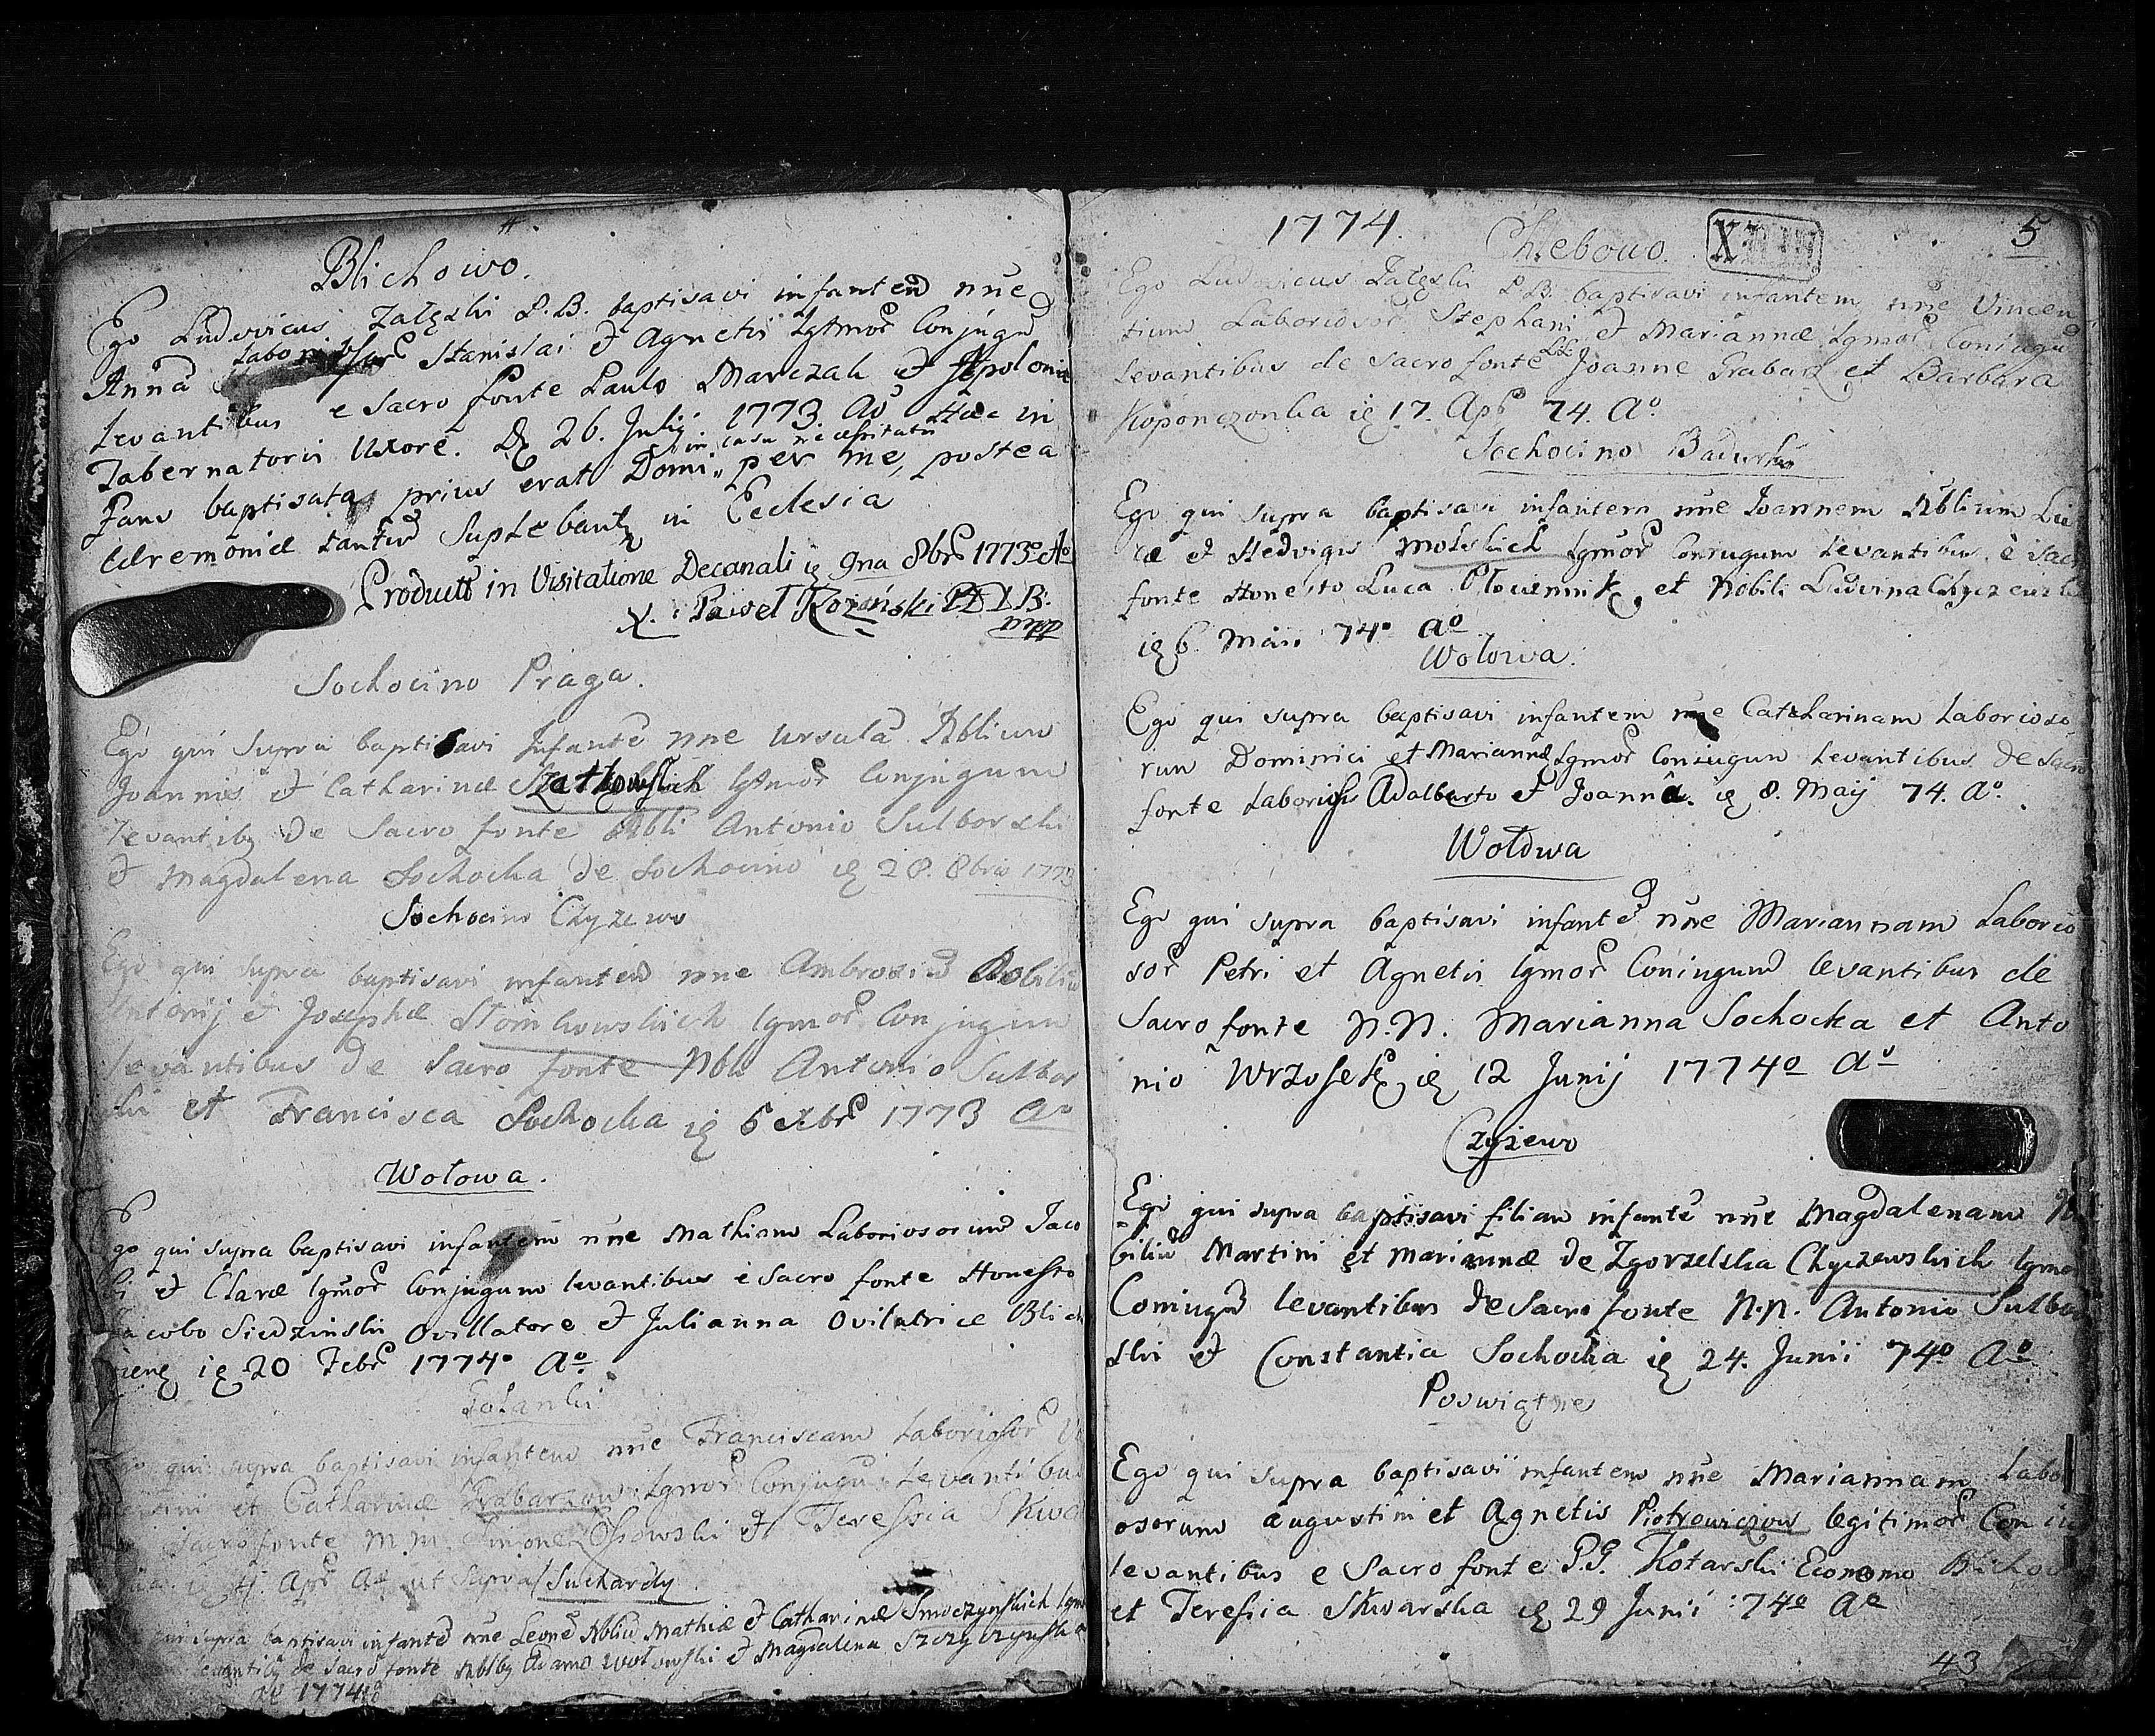 Blichowo.
Ego Ludovicus Załęski P.B. baptisavi infantem nñe
Anna Labo Stanislai et Agnetis Lgtmor Conjugũ
Levantibus e Sacro fonte Paulo Marczak et Apolonia
Tabernatoris Uxore. Dę 26. Julij 1773. Ao Hæc in
in casu necessitatis
Fans baptisata prius erat Domi,, per me, postea
Cæremoniæ tantum Suplebantę in Ecclesia
Product in Visitatione Decanali ię 9na 8br 1773o Ao
X. Paweł Rozański PD B.
mpp
Sochocino Praga.
Ego qui Supra baptisavi Infantẽ nñe Ursulã Nblium
Joannis et Catharinæ Szatkowskich lgtmor Conjugum
Levantibę de Sacro fonte Nbli Antonio Sulborski
et Magdalena Sochocka de Sochocino ię 28. 8bris 1773
Sochocino Czyzewo
Ego qui supra baptisavi infantem nñe Ambrosiũ Nobiliũ
Antonij et Josephæ Słomkowskich lgmor Conjugum
levantibus de Sacro fonte Nbli Antonio Sulbor
ski et Francisca Sochocka ię 6 Xbr 1773 Ao
Wołowa.
Ego qui supra baptisavi infantem nñe Mathiam Laboriosorum Jaco
bi et Claræ lgmor Conjugum levantibus e Sacro fonte Honesto
Jacobo Siedzinski Ovillatore et Julianna Ovilatrice Blich
ię 20 Febr 1774o Ao
Golanki
qui supra baptisavi infantem nñe Franciscam Laboriosor
et Catharinæ Grabarzow Lgmor Conjugũ Levantibus
Sacro fonte M.M. Simone Ossowski et Teressia Skwar
ię Apr Ao ut Supra Suchardy
qui supra baptisavi infantẽ nñe Leonẽ Nbliũ Mathiæ et Catharinæ Smoczynskich lgm
levantibę de Sacro fonte Nblbę Adamo Wołowski et Magdalena Szczyczynska
1774o
1774. 5
Chlebowo.
Ego Ludovicus Załęski P.B. baptisavi infantem nñe Vincen
tium Laboriosor Stephani et Mariannæ Lgmor Coniugũ
Levantibus de Sacro fonte LL Joanne Grabarz et Barbara
Koponczonka ię 17. Apr 74. Ao.
Sochocino Badurki
Ego qui supra baptisavi infantem nñe Joannem Nblium Lu
cæ et Hedvigis Molskich lgmor Coniugum Levantibus e Sacr
fonte Honesto Luca et Nobili Ludvina Chyczewska
ię 6. Maii 74o Ao
Wołowa.
Ego qui supra baptisavi infantem nñe Catharinam Laborioso
rum Dominici et Mariannæ Lgmor Coniugum Levantibus de Sacro
fonte Laboriosis Adalberto et Joannâ. ię 8. Maij 74. Ao.
Wołowa
Ego qui supra baptisavi infantẽ nñe Mariannam Laborio
sor Petri et Agnetis lgmor Coniugum levantibus de
Sacro fonte N.N. Marianna Sochocka et Anto
nio Wrzosek, ię 12 Junij 1774o Ao
Czyzewo
Ego qui supra baptisavi filiam infantẽ nñe Magdalenam No
biliũ Martini et Mariannæ de Zgorzelska Chyczewskich lgmor
Coniugũ levantibus de Sacro fonte N.N. Antonio Sulbor
ski et Constantia Sochocka ię 24. Junii 74o Ao
Poswiętne
Ego qui supra baptisavi infantem nñe Mariannam Labor
osorum Augustini et Agnetis Piotrowiczow legitimor Coniu
levantibus e Sacro fonte P.J. Kotarski Economo Blichov
et Teressia Skwarska ię 29 Junii 74o Ao
43